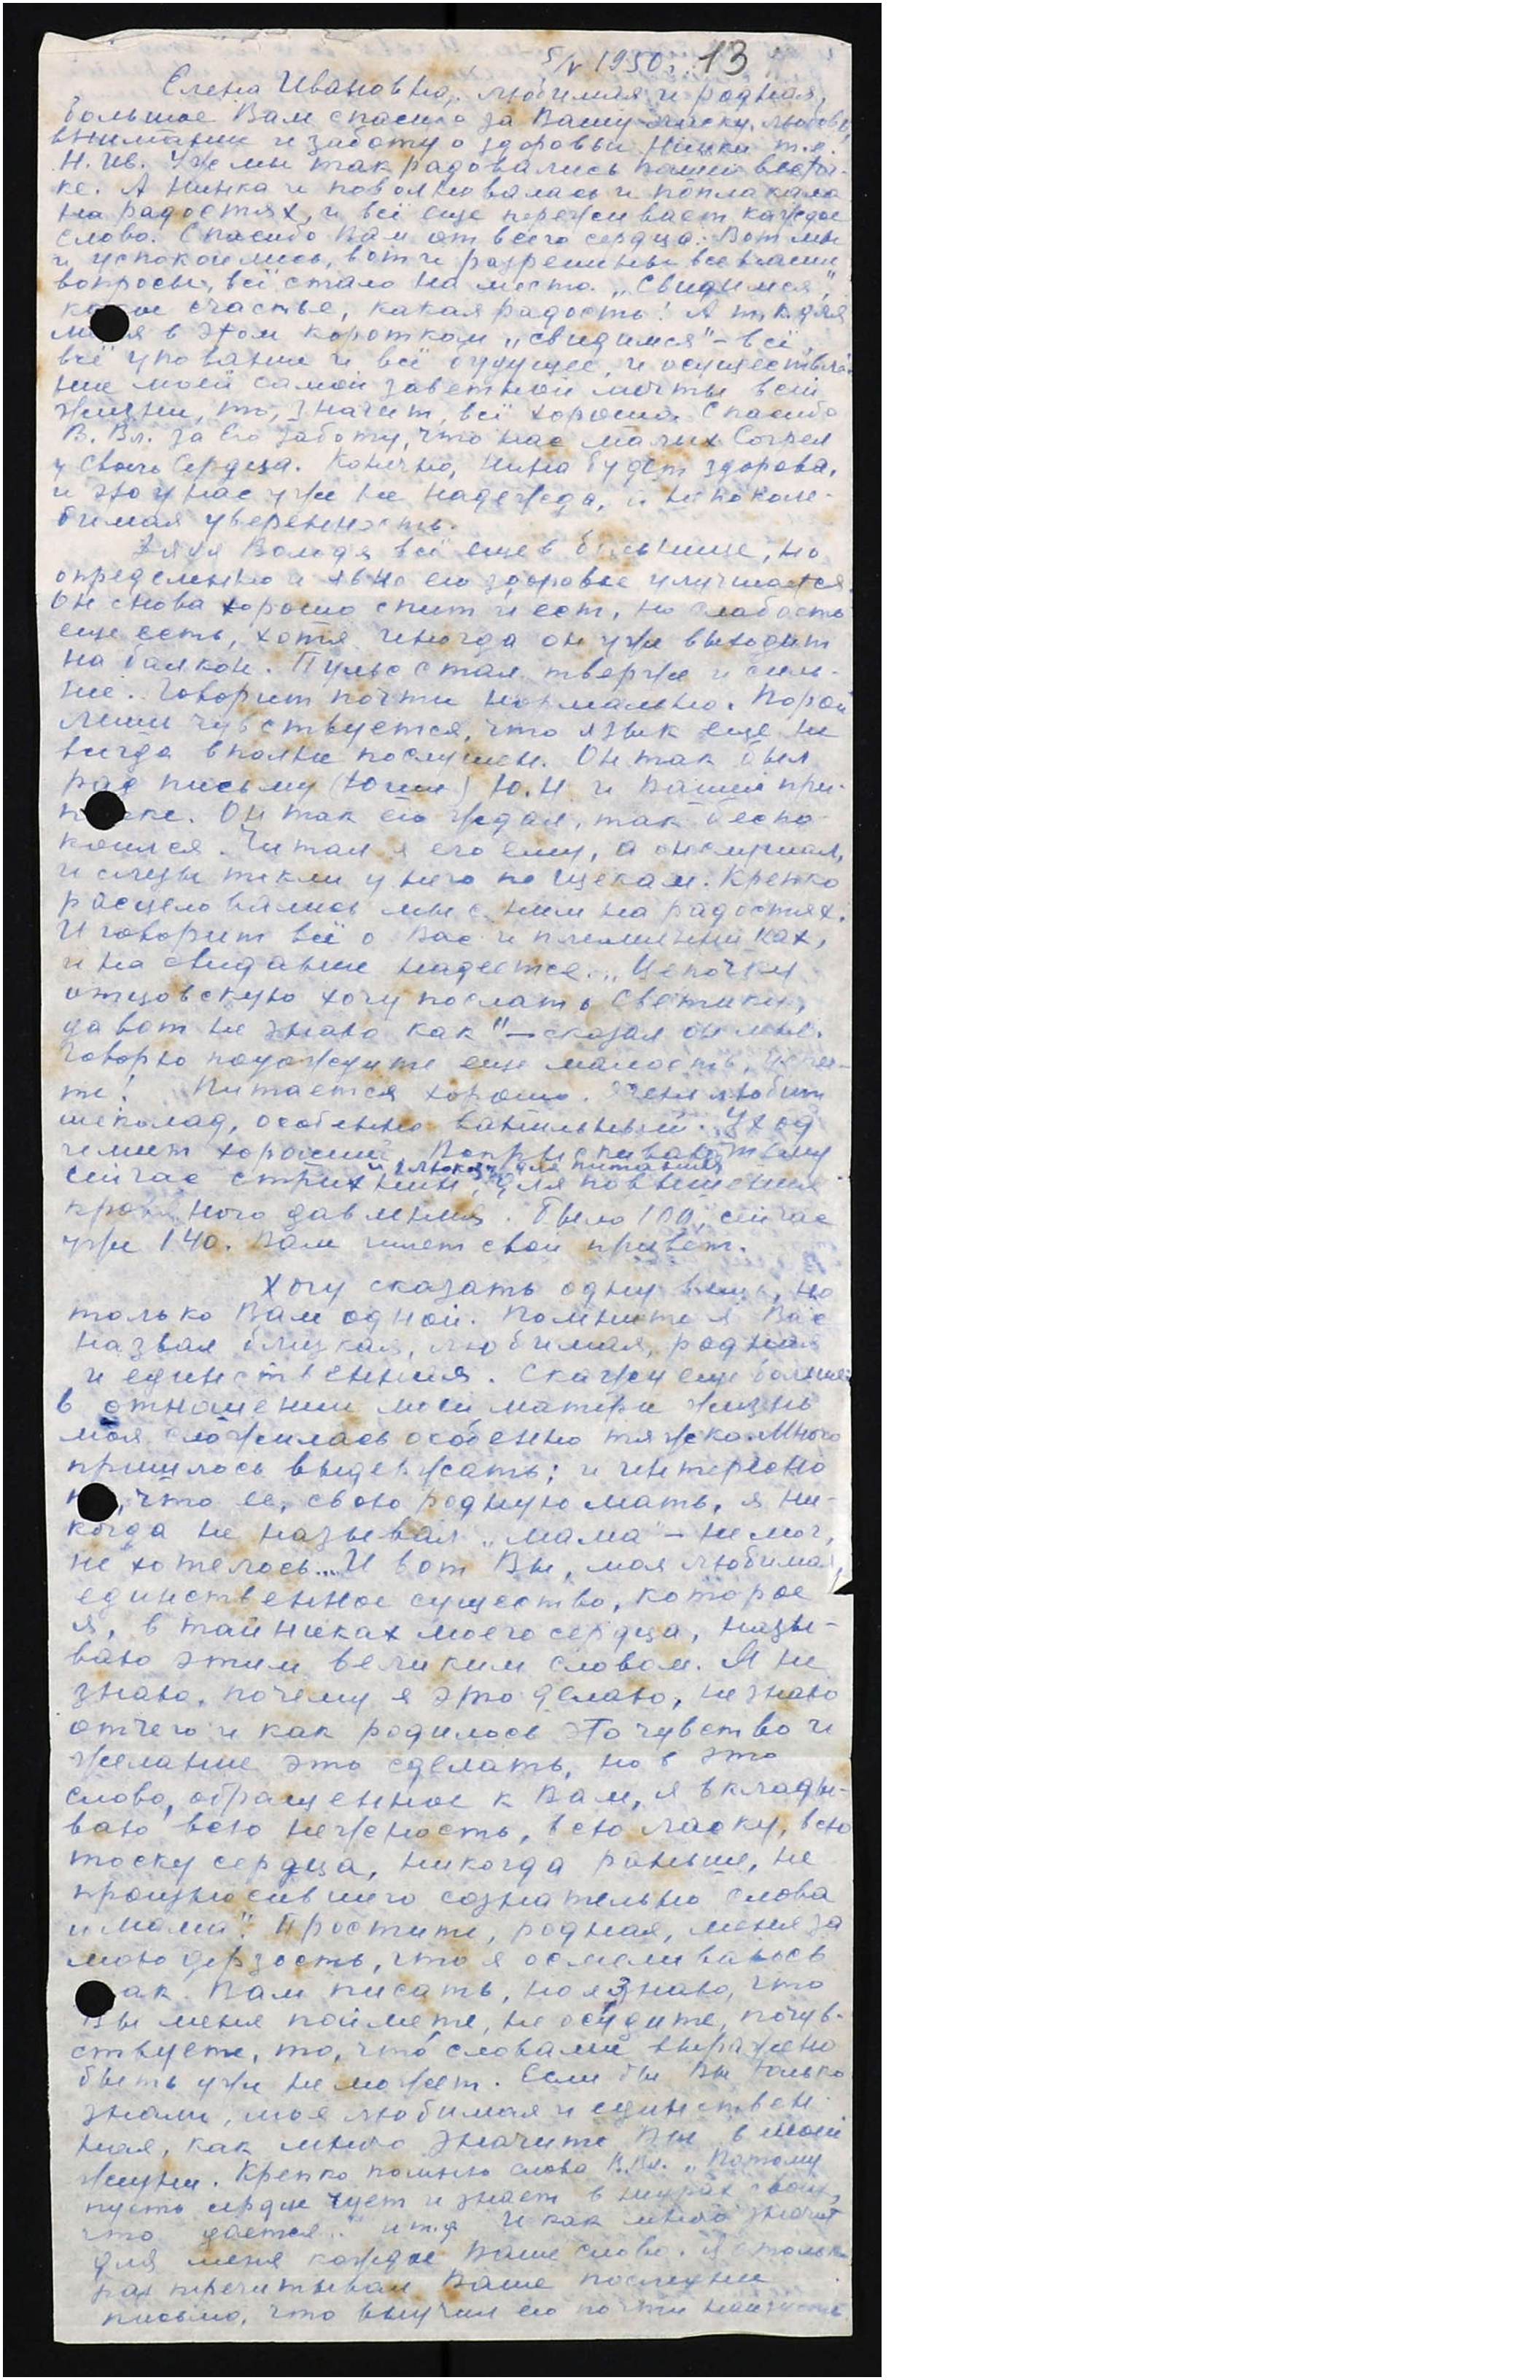 5/V 1950г. 13
Елена Ивановна, любимая и родная,
большое Вам спасибо за Вашу ласку, любовь,
внимание и заботу о здоровьи Нинки т.е.
Н. Ив. Уж мы так радовались Вашей весточ-
ке. А Нинка и поволновалась и поплакала
на радостях, и всё еще переживает каждое
слово. Спасибо Вам от всего сердца. Вот мы
и успокоились, вот и разрешины все наши
вопросы, всё стало на место. „Свидимся",
какое счастье, какая радость! А т.к. для
меня в этом коротком „свидимся" – всё,
всё упование и всё будущее, и осуществле-
ние моей самой заветной мечты всей
жизни, то, значит, всё хорошо. Спасибо
В. Вл. за Его заботу, что нас малых Согрел
у Своего Сердца. Конечно, Нина будет здорова,
и это у нас уже не надежда, а непоколе-
бимая уверенность.
Дядя Володя всё еще в больнице, но
определенно и явно его здоровье улучшается.
Он снова хорошо спит и ест, но слабость
еще есть, хотя иногда он уже выходит
на балкон. Пульс стал тверже и силь-
ней. Говорит почти нормально. Порой
лишь чувствуется, что язык еще не
всегда вполне послушен. Он так был
рад письму (Юши) Ю.Н. и Вашей при-
писке. Он так его ждал, так беспо-
коился. Читал я его ему, а он слушал,
и слезы текли у него по щекам. Крепко
расцеловались мы с ним на радостях.
И говорит всё о Вас и племянниках,
и на свидание надеется. „Цепочку
отцовскую хочу послать Светику,
да вот не знаю как" – сказал он мне.
Говорю подождите еще малость, успее-
те! Питается хорошо. Очень любит
шоколад, особенно ванильный. Уход
имеет хороший. Впрыскивают ему
и глюкозу для питания
сейчас стрихнин, для повышения
кровяного давления. Было 100, сейчас
уже 140. Вам шлет свой привет.
Хочу сказать одну вещь, но
только Вам одной. Помните я Вас
назвал близкая, любимая, родная
и единственная. Скажу еще больше:
в отношении моей матери жизнь
моя сложилась особенно тяжко. Много
пришлось выдержать; и интересно
то, что ее, свою родную мать, я ни-
когда не называл „мама" – не мог,
не хотелось... И вот Вы, моя любимая,
единственное существо, которое
я, в тайниках моего сердца, назы-
ваю этим великим словом. Я не
знаю, почему я это делаю, не знаю
отчего и как родилось это чувство и
желание это сделать, но в это
слово, обращенное к Вам, я вклады-
ваю всю нежность, всю ласку, всю
тоску сердца, никогда раньше, не
произносившего сознательно слова
„мама". Простите, родная, меня за
мою дерзость, что я осмеливаюсь
так Вам писать, но я знаю, что
Вы меня поймете, не осудите, почув-
ствуете, то, что словами выражено
быть уже не может. Если бы Вы только
знали, моя любимая и единствен-
ная, как много значите Вы в моей
жизни. Крепко помню слова В.Вл. „Потому
пусть сердце чует и знает в недрах своих,
что дается..." и т.д. И как много значит
для меня каждое Ваше слово. Я столько
раз перечитывал Ваше последнее
письмо, что выучил его почти наизусть.